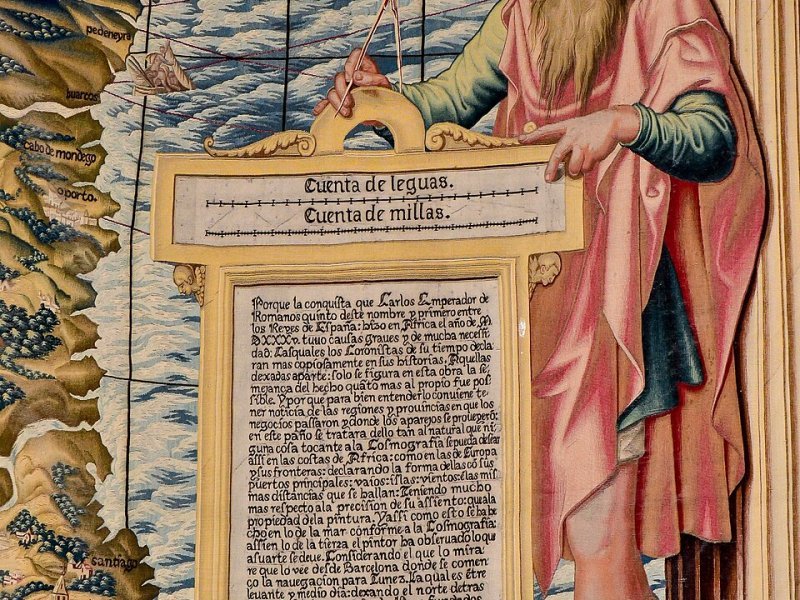 pedeneyra
buarcos
cabo de mondego
oporto
santiago
Cuenta de leguas.
Cuenta de millas.
Porque la conquista que Carlos Emperador de
Romanos quinto deste nombre y primero entre
los Reyes de España: hizo en Africa el año de M
DXXXv. tuuo causas graues y de mucha necessi
dad. Lasquales los Coronistas de su tiempo decla
ran mas copiosamente en sus historias. Aquellas
dexadas aparte: solo se figura en esta obra la se
mejança del hecho quãto mas al propio fue pos
sible. Y porque para bien entender lo conuiene te
ner noticia de las regiones y prouincias en que los
negocios passaron y donde los aparejos se proueyerõ:
en este paño se tratara dello tan al natural que ni
guna cosa tocante ala Cosmografia se pueda dessear
assi en las costas de Africa: como en las de Europa
y sus fronteras: declarando la forma dellas cõ sus
puertos principales: vaios: islas: vientos: elas mis
mas distancias que se hallan: Teniendo mucho
mas respecto ala precision de su assiento: quala
propiedad dela pintura. Y assi como esto se ha he
cho en lo de la mar conforme a la Cosmografia:
assi en lo de la tierra el pintor ha obseruado lo que
asu arte se deue. Considerando el que lo mira
re que lo vee desde Barcelona donde se comen
co la nauegacion para Tunez. La qual es ẽtre
leuante y medio dia: dexando el norte detras